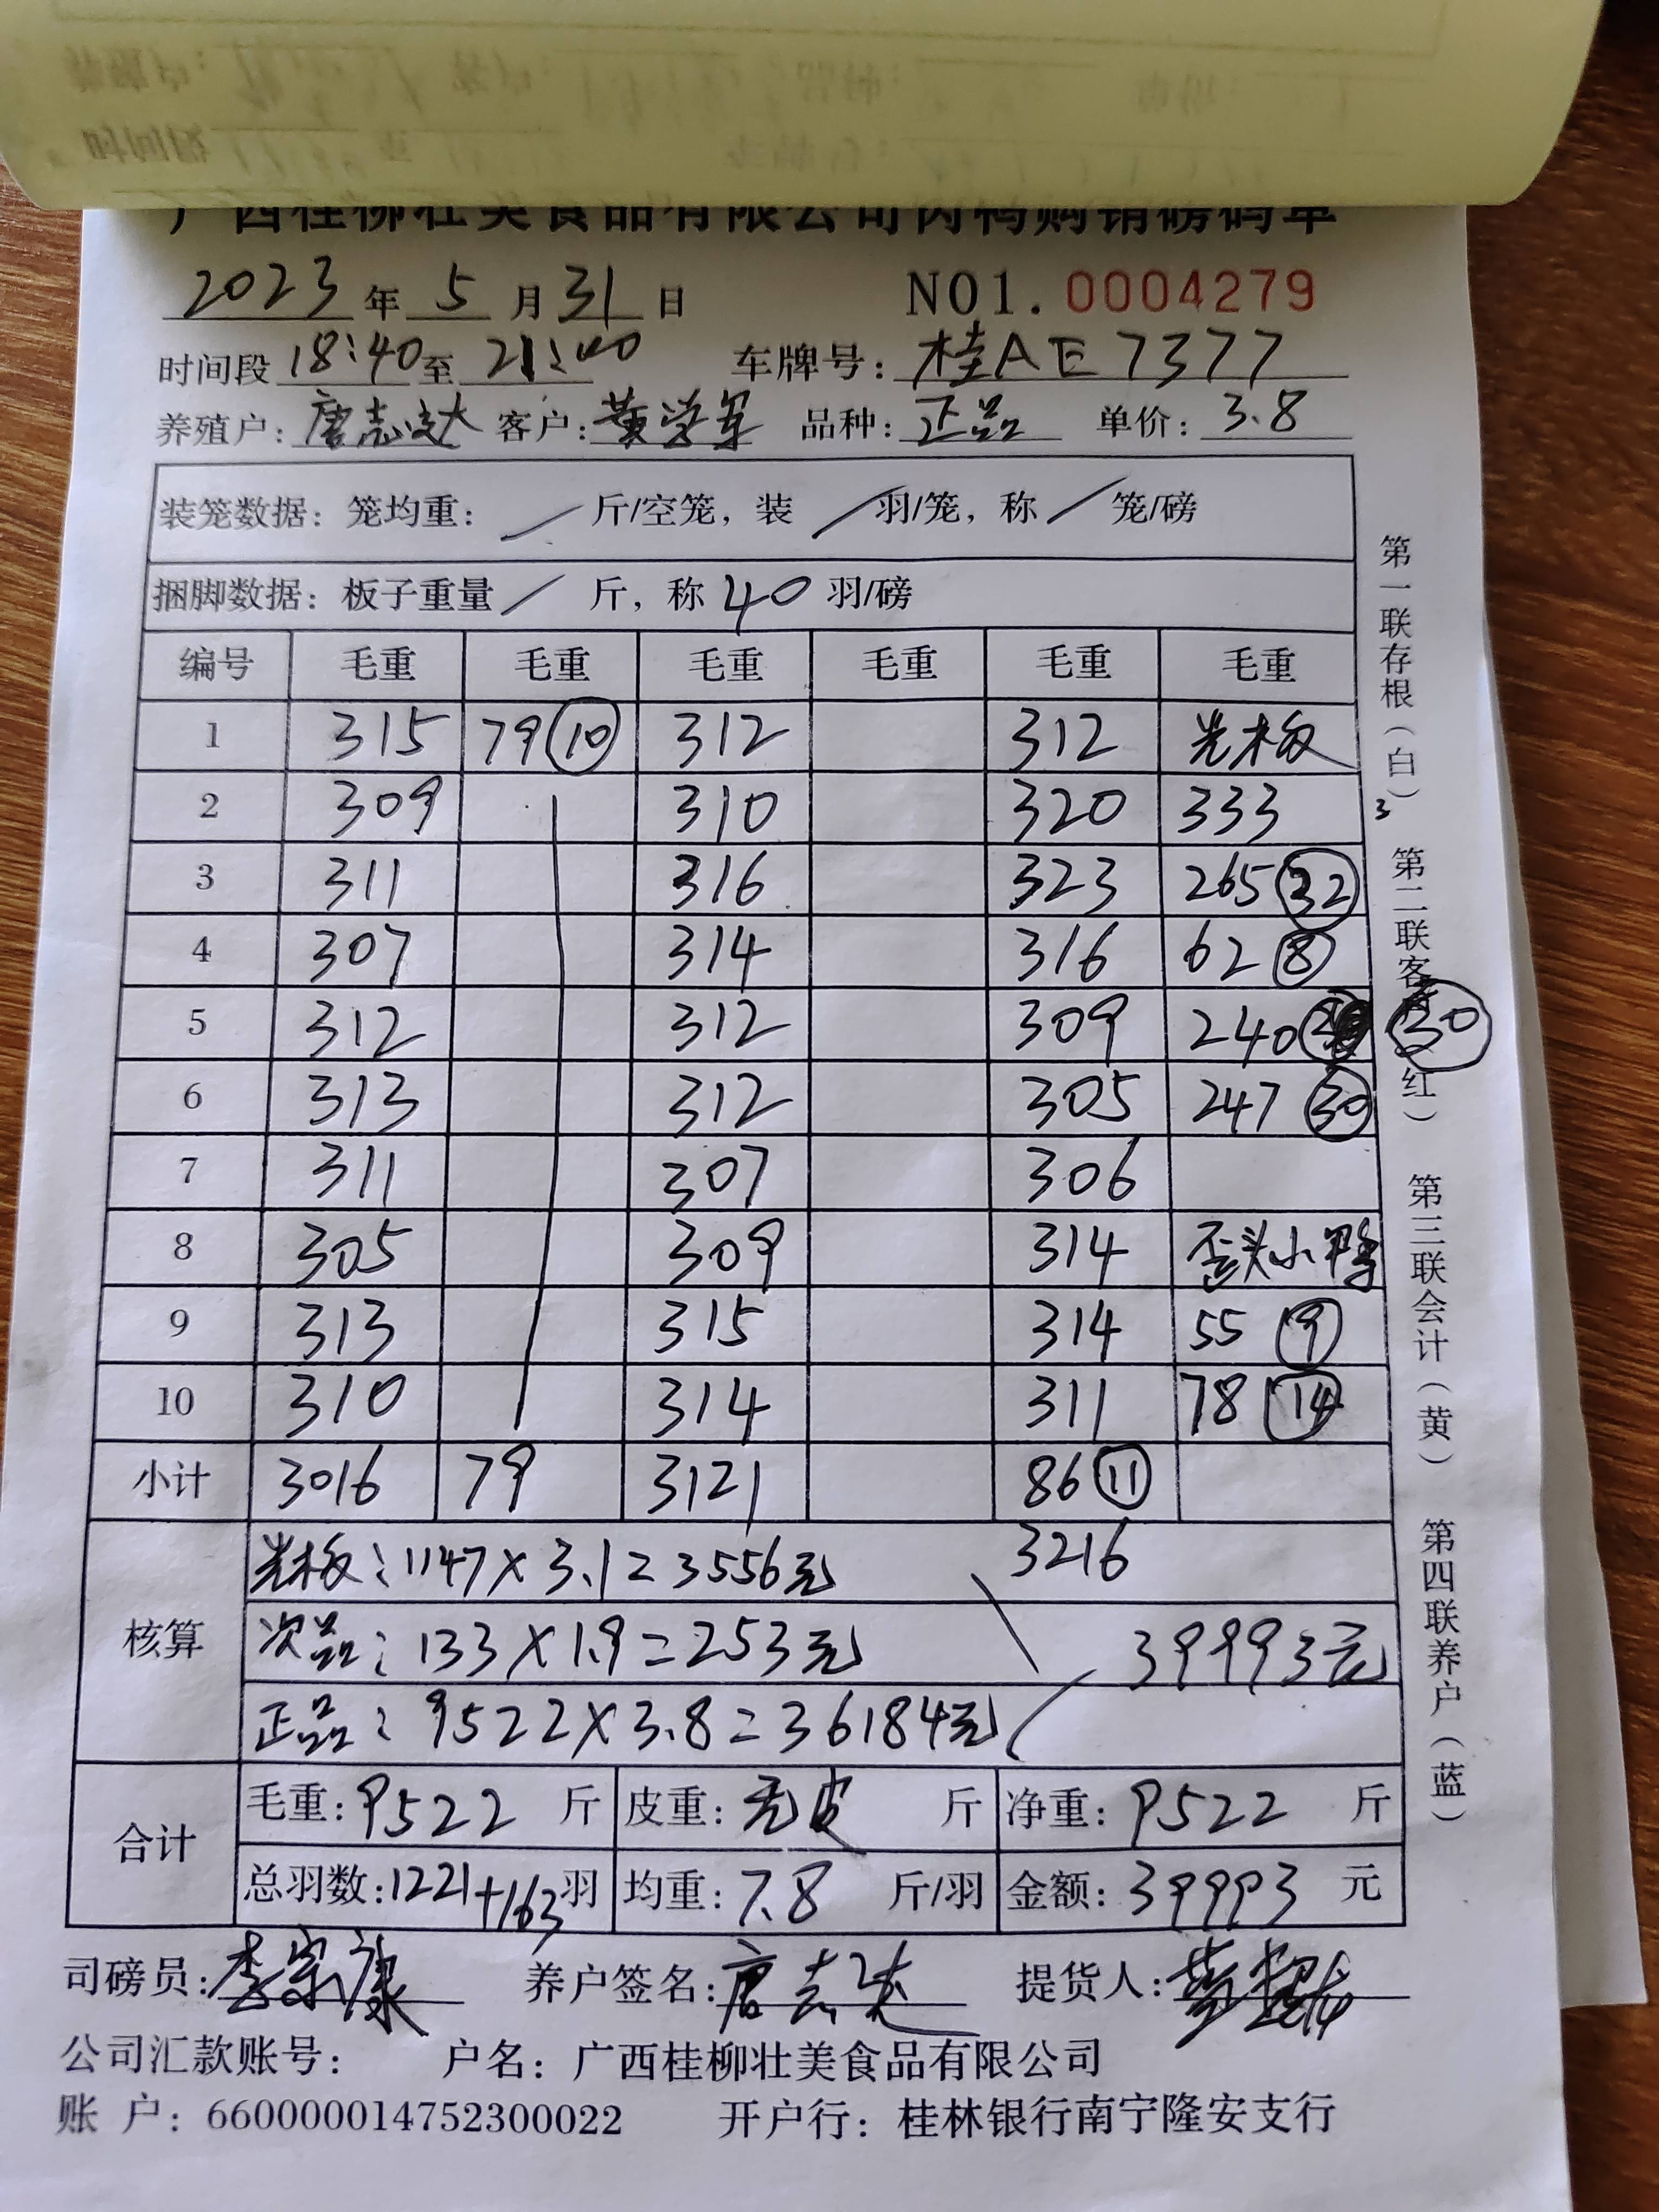 广西桂柳壮美食品有限公司肉鸭购销磅码单
2023年5月31日 NO1.0004279
时间段18:40至21:00 车牌号:桂AE7377
养殖户:唐志达 客户:黄学军 品种:正品 单价:3.8
装笼数据:笼均重: / 斤/空笼,装 / 羽/笼,称 / 笼/磅
捆脚数据:板子重量 / 斤,称40羽/磅
编号 毛重 毛重 毛重 毛重 毛重 毛重
1 315 79⑩ 312 312 光板
2 309 310 320 333
3 311 316 323 265㉜
4 307 314 316 62⑧
5 312 312 309 240 ㉚
6 313 312 305 247㉚
7 311 307 306
8 305 309 314 歪头小鸭
9 313 315 314 55⑨
10 310 314 311 78⑭
小计 3016 79 3121 86⑪
3216
核算
光板:1147×3.1=3556元
次品:133×1.9=253元
39993元
正品:9522×3.8=36184元
合计
毛重:9522斤 皮重:无皮斤 净重:9522斤
总羽数:1221+163羽 均重:7.8斤/羽 金额:39993元
司磅员:李宗康 养户签名:唐志达 提货人:
公司汇款账号: 户名:广西桂柳壮美食品有限公司
账 户:660000014752300022 开户行:桂林银行南宁隆安支行
第一联存根(白)
第二联客(红)
第三联会计(黄)
第四联养户(蓝)